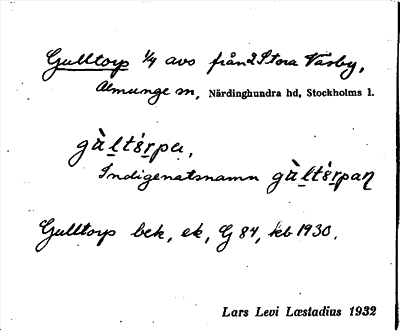 Gulltorp 1/4 avs från 2 Stora Väsby,
Almunge sn, Närdinghundra hd, Stockholms l.
gàl̲tór̲pa,
Indigenatsnamn gàl̲tór̲paɳ
Gulltorp bek, ek, G 84, kb 1930.
Lars Levi Læstadius 1932